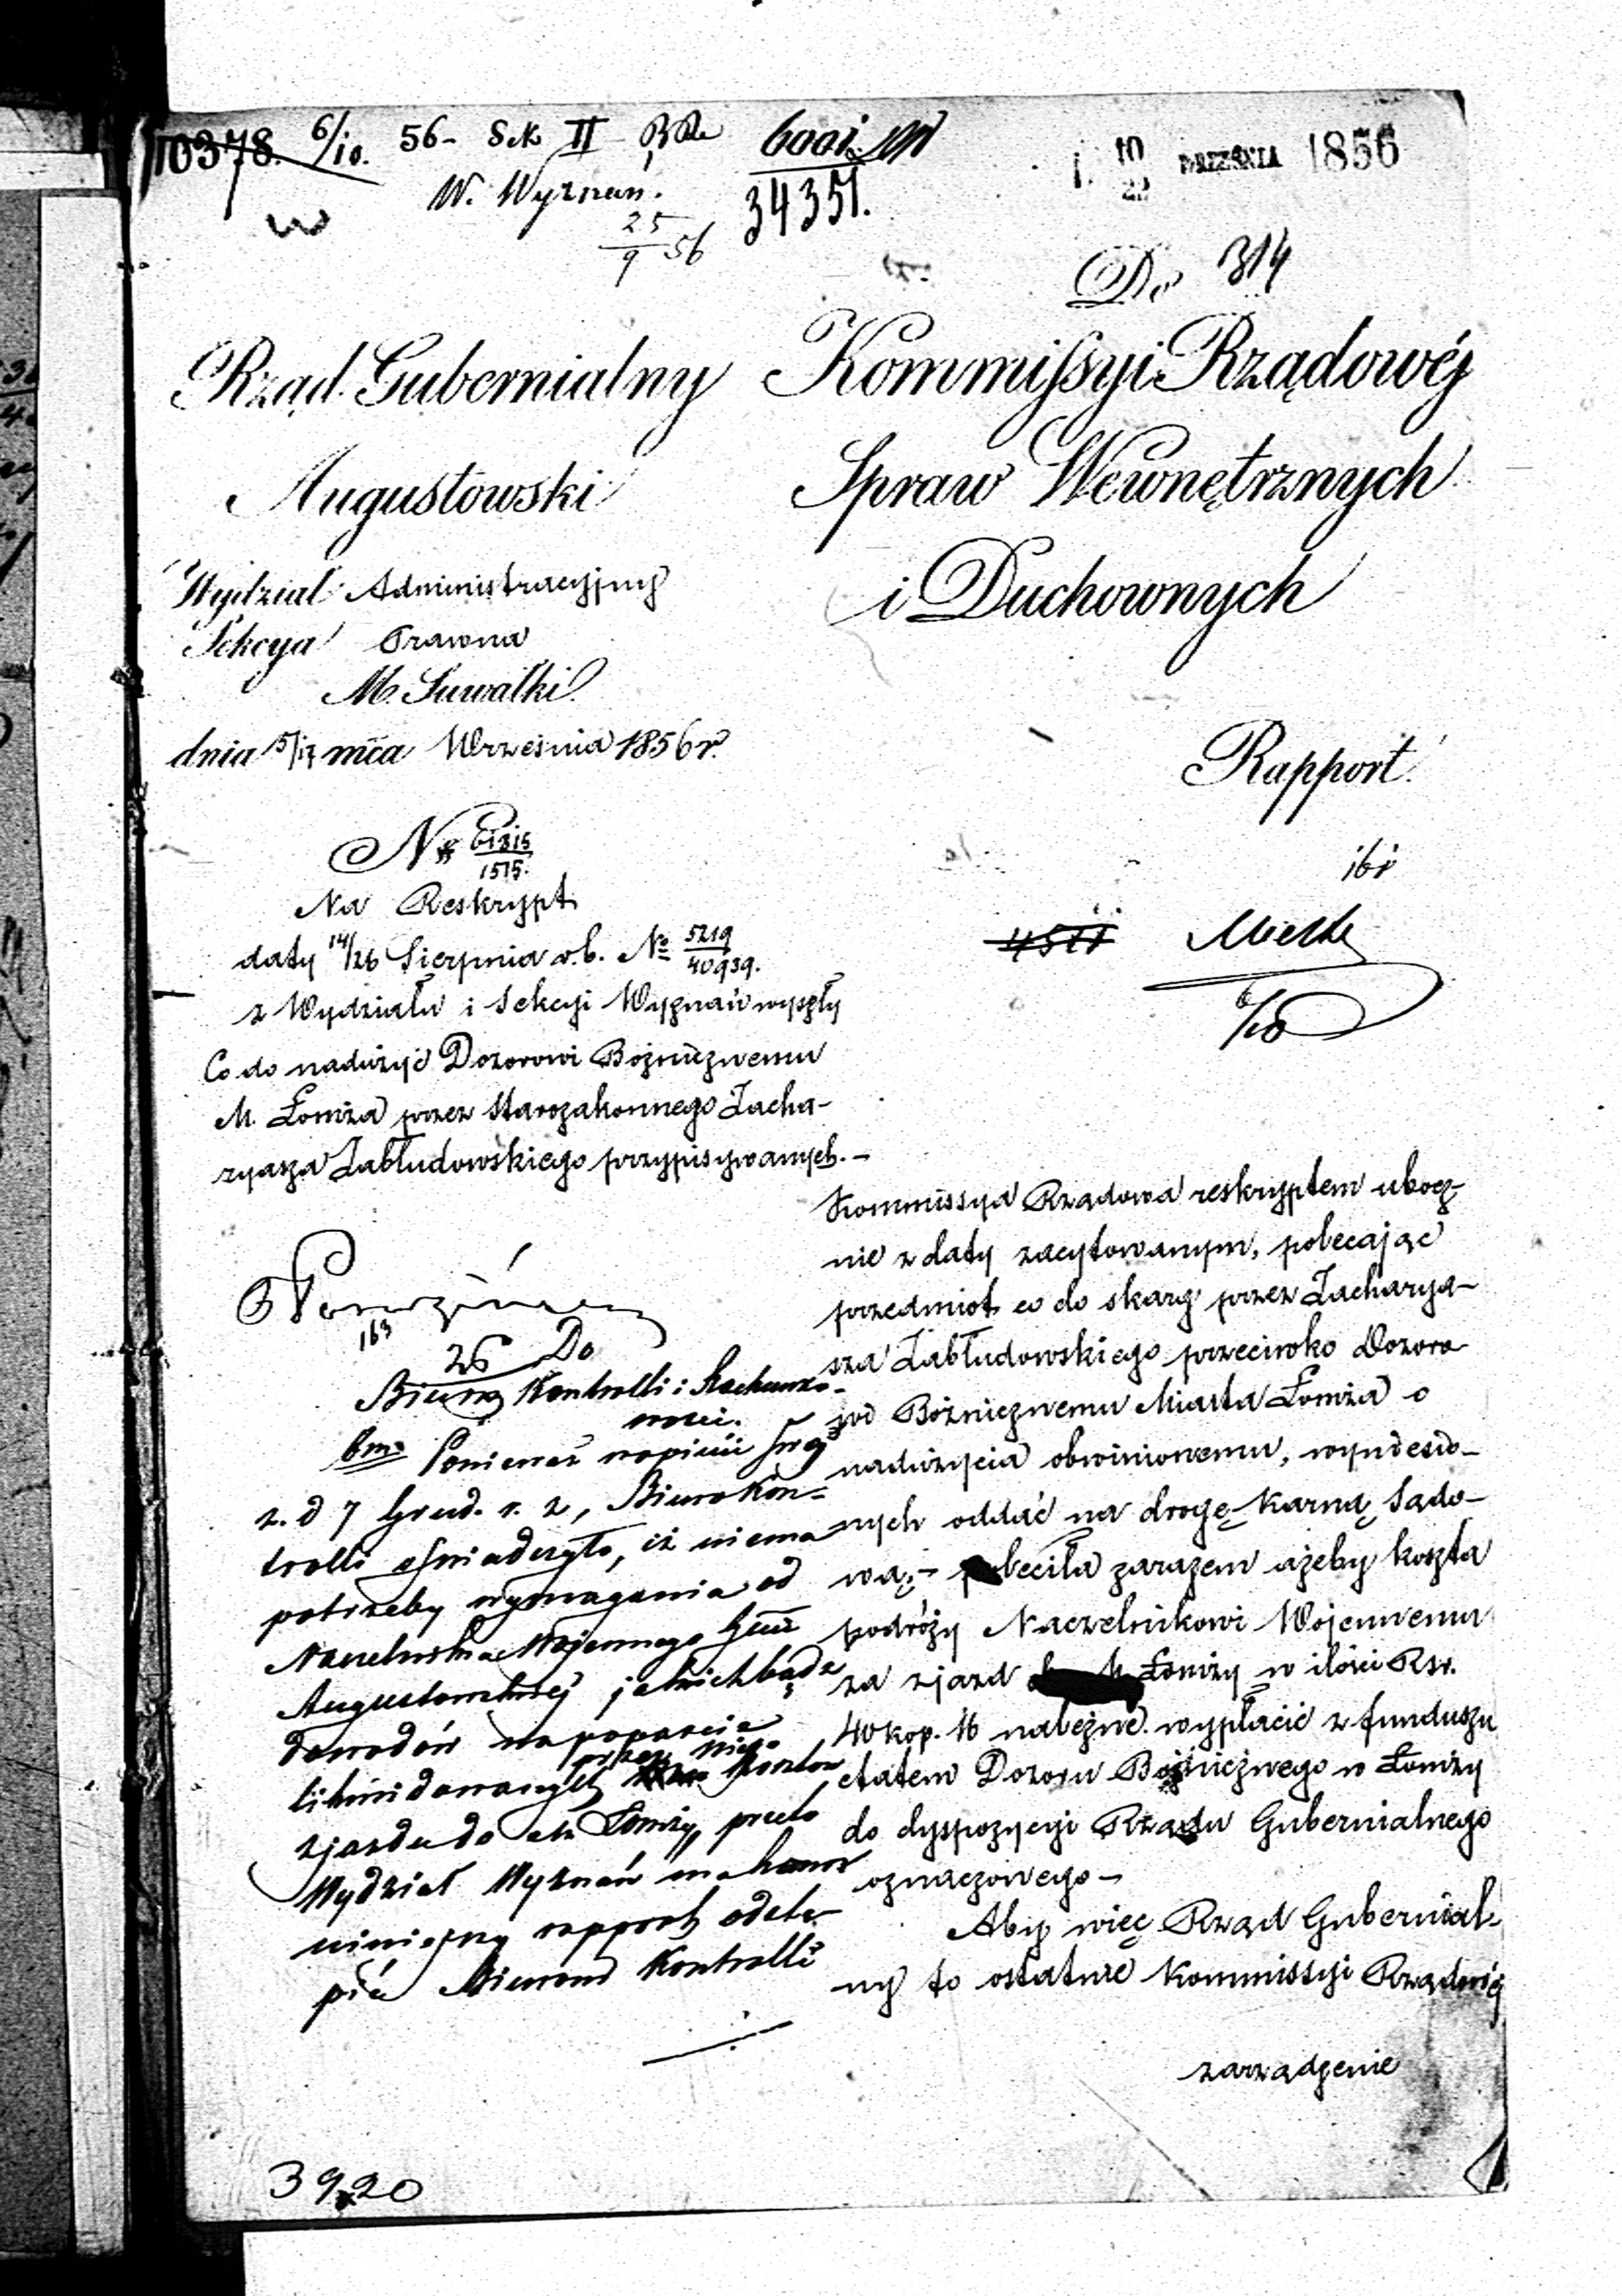 10378. 6/10. 56 - Sek II
W. Wyznań.
25/9 56
34351.
10/22 WRZEŚNIA 1856
314
Do
Kommissyi Rządowéj
Spraw Wewnętrznych
i Duchownych
Rapport
Rząd Gubernialny
Augustowski
Wydział Administracyjny
Sekcya Prawna
M. Suwałki
dnia 5/17 mca Września 1856 r.
N
1515.
Na Reskrypt
daty 14/26 Sierpnia r. b. No 5219/40939.
z Wydziału i Sekcyi Wyznań wyszły
Co do nadużyć Dozorowi Bożnicznemu
M. Łomża przez Starozakonnego Zacha-
ryasza Zabłudowskiego przypisywanych. -
4511
6/10
Kommissya Rządowa reskryptem ubocz-
nie z daty zacytowanym, polecając
przedmiot co do skarg przez Zacharya-
sza Zabłudowskiego przeciwko Dozoro-
wi Bożnicznemu Miasta Łomża o
nadużycia obwinionemu, wyniesio-
nych oddać na drogę karną Sądo-
wą, - poleciła zarazem ażeby koszta
podróży Naczelnikowi Wojennemu
za zjazd Łomży w ilości Rsr.
40 kop. 16 należne wypłacić z funduszu
etatem Dozoru Bożnicznego w Łomży
do dyspozycyi Rządu Gubernialnego
oznaczonego -
Aby więc Rząd Gubernial-
ny to ostatnie Kommissyi Rządowéj
zarządzenie
163
26 Do
Biura Kontrolli i Rachunko-
wości.
Ponieważ w opinii swej
z. d 7 Grud. r. z, Biuro Kon-
trolli oświadczyło, iż niema
potrzeby wymagania od
Naczelnika Wojennego Gub
Augustowskiej jakichbądź
dowodów na poparcie
likwidowanych przez niego kosztów
zjazdu do Łomży, przeto
Wydział Wyznań ma honor
niniejszy rapport odstą-
pić Biurowi Kontrolli
3920